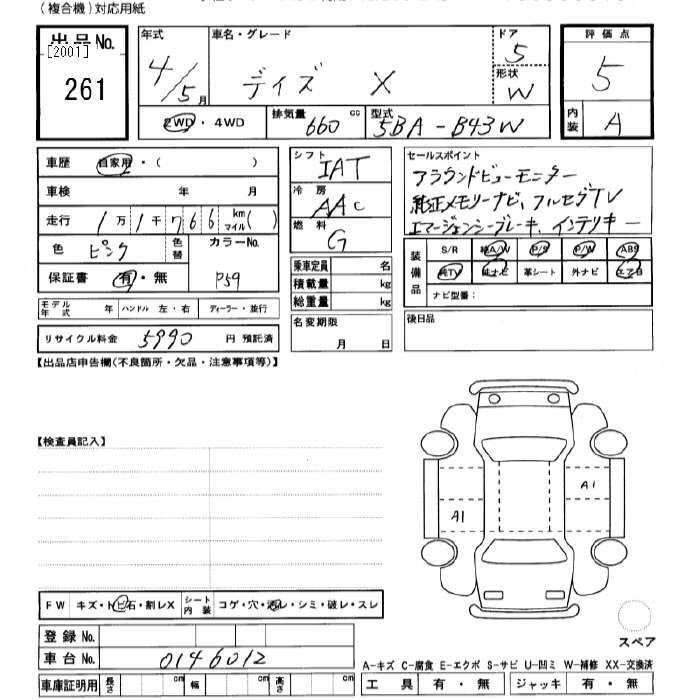 (複合機)対応用紙
出品No.
[2001]
261
年式
4/5月
車名・グレード
デイズ X
ドア
5
形状
W
評価点
5
内装
A
2WD・4WD
排気量
660
cc
型式
5BA-B43W
車歴
自家用・( )
車検 年 月
走行
1万1千766
km
マイル
( )
色
ピンク
色替
カラーNo.
P59
保証書
有・無
モデル年式
年
ハンドル 左・右
ディーラー・並行
リサイクル料金 5990 円 預託済
シフト
IAT
冷房
AAC
燃料
G
乗車定員 名
積載量 kg
総重量 kg
名変期限
月 日
セールスポイント
アラウンドビューモニター
純正メモリーナビ、フルセグTV
エマージェンシーブレーキ、インテリキー
装備品
S/R
純A/W
P/S
P/W
ABS
純TV
純ナビ
革シート
外ナビ
エアB
ナビ型番:
後日品
【出品店申告欄(不良箇所・欠品・注意事項等)】
【検査員記入】
A1
A1
FW
キズ・トビ石・割レX
シート内装
コゲ・穴・汚レ・シミ・破レ・スレ
スペア
登録No.
車台No.
0146012
A-キズ C-腐食 E-エクボ S-サビ U-凹ミ W-補修 XX-交換済
車庫証明用
長さ
cm
幅
cm
高さ
cm
工具 有・無
ジャッキ 有・無